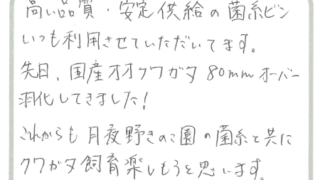 高い品質・安定供給の菌糸ビン
いつも利用させていただいてます。
先日、国産オオクワガタ 80mmオーバー
羽化してきました！
これからも月夜野きのこ園の菌糸と共に
クワガタ飼育楽しもうと思います。